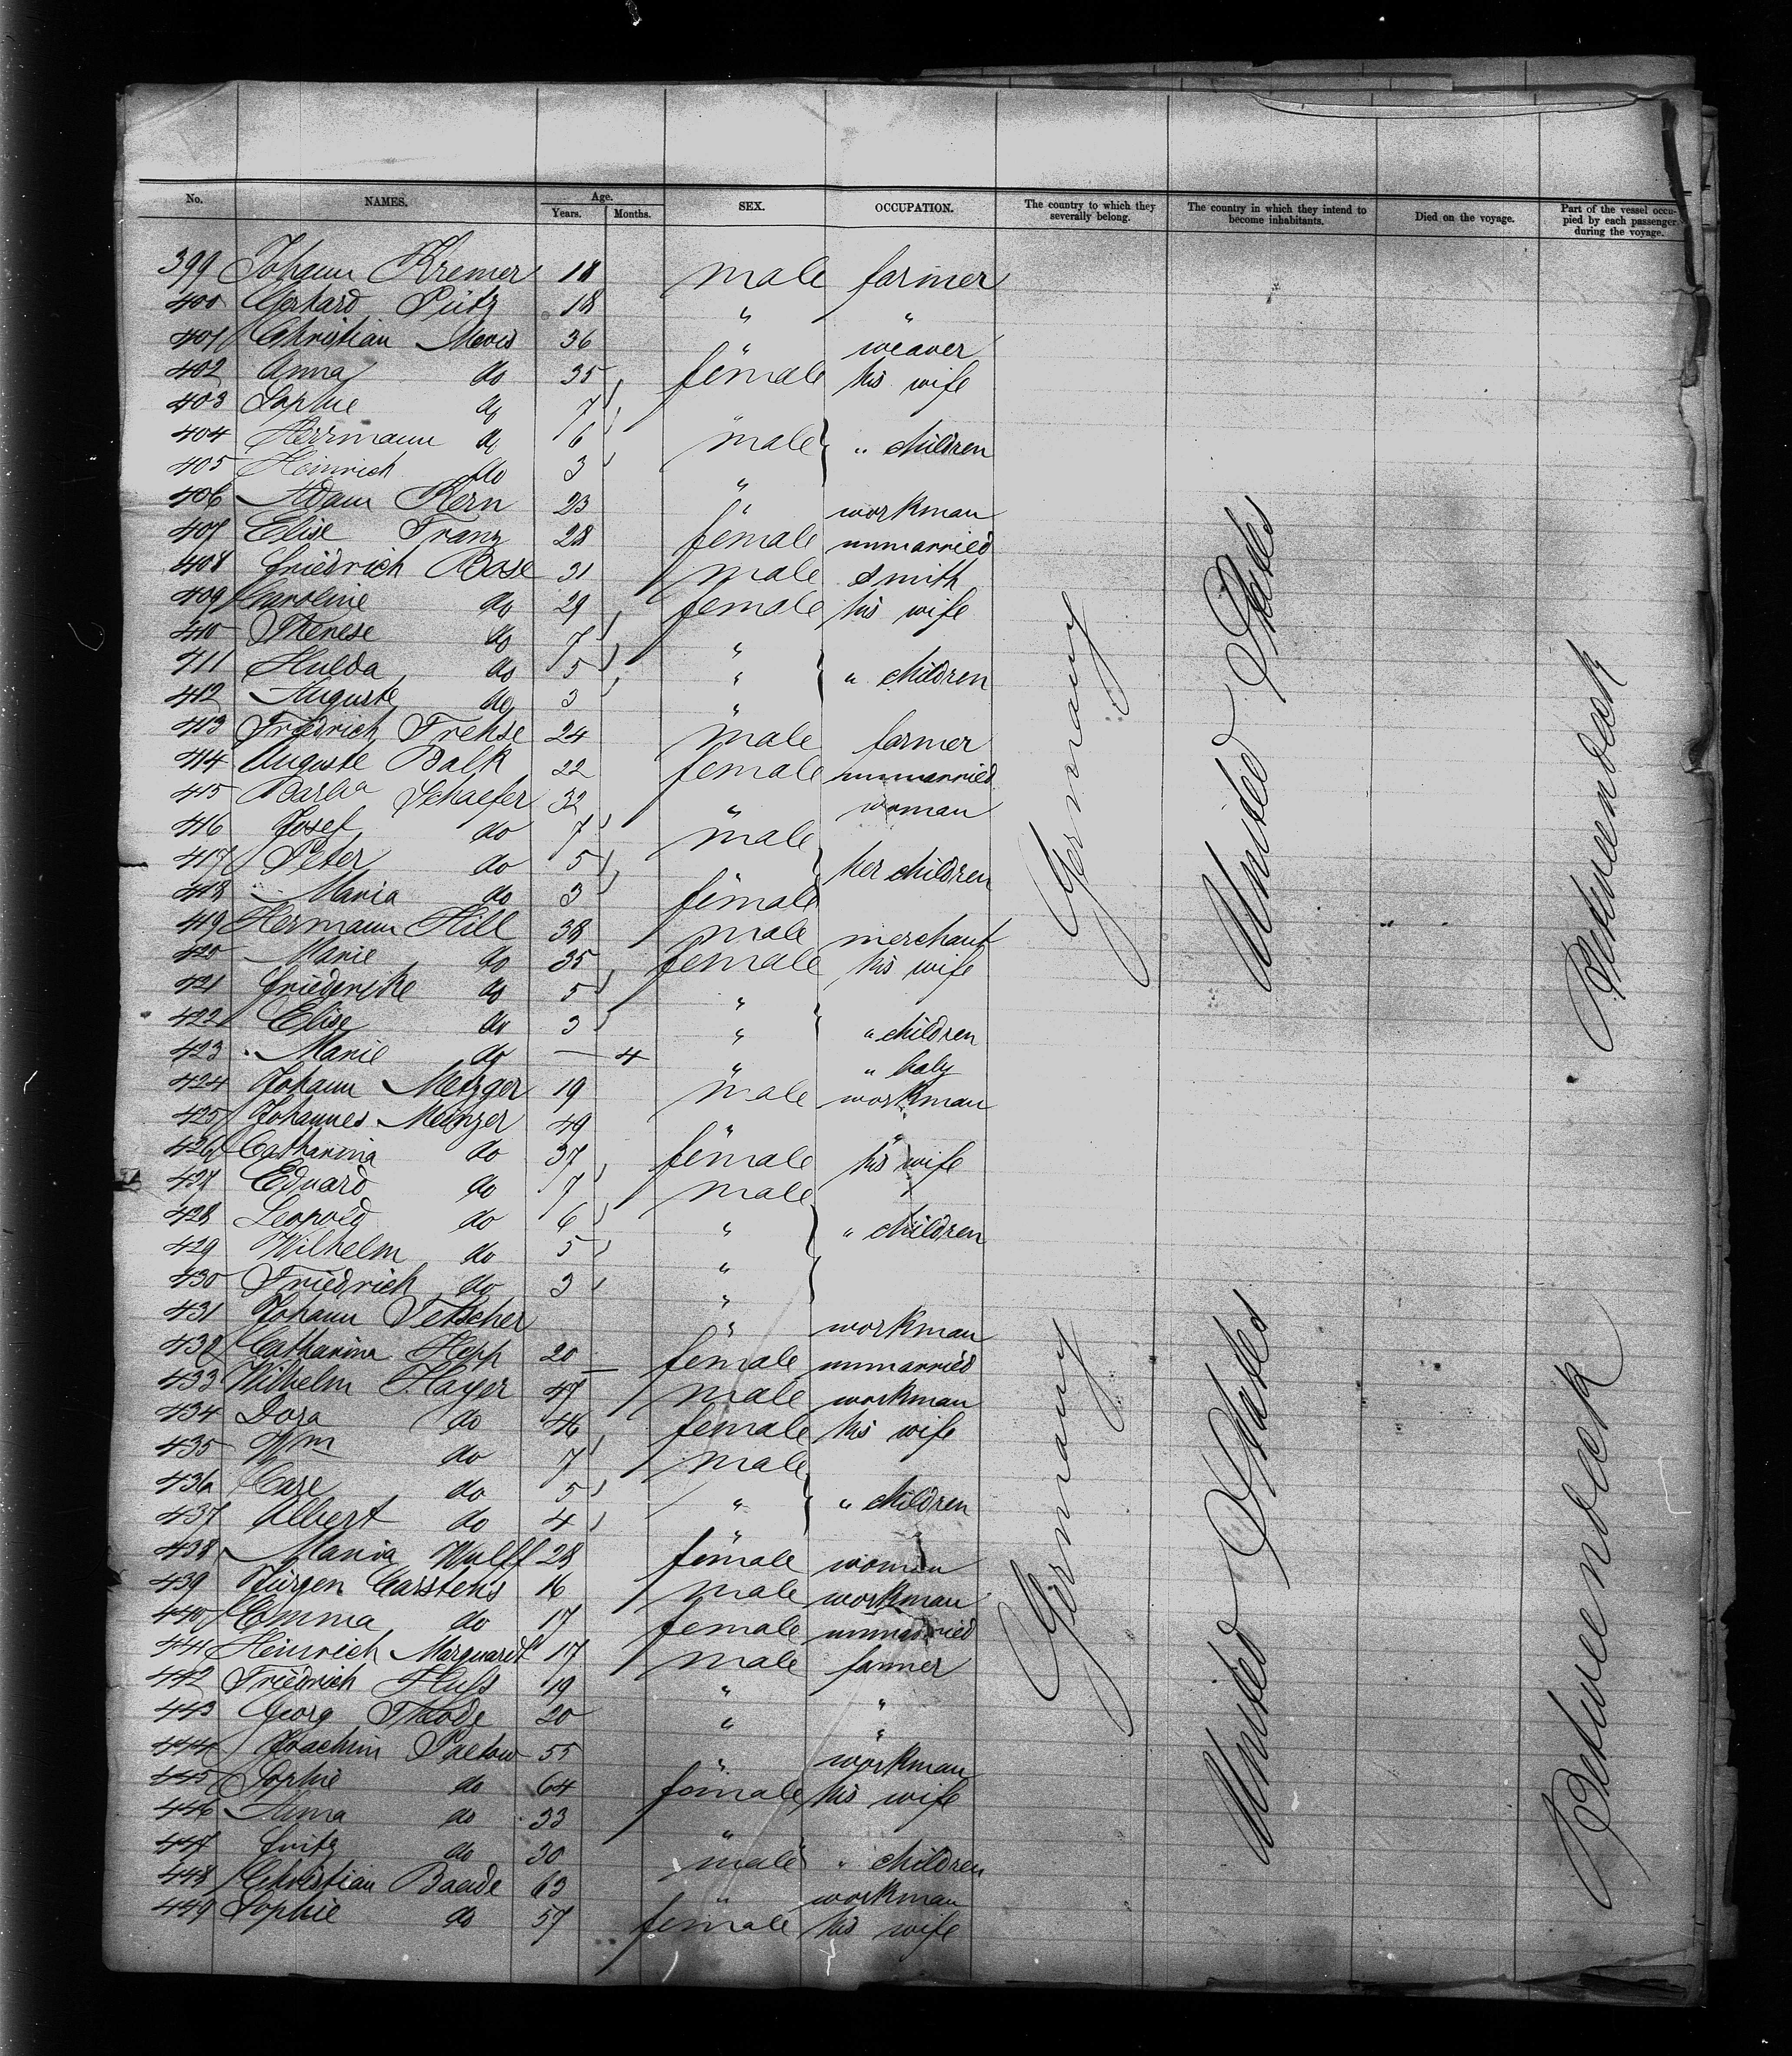 No. NAMES. Age. Years. Months. SEX. OCCUPATION. The country to which they severally belong. The country in which they intend to become inhabitants. Died on the voyage. Part of the vessel occupied by each passenger during the voyage.
399 Johann Kremer 18 male farmer
400 Gerhard Pütz 18 " "
401 Christian Mewis 36 " weaver
402 Anna do 35 female his wife
403 Sophie do 7 "
404 Herrmann do 6 male " children
405 Heinrich do 3 "
406 Adam Kern 23 " workman
407 Elise Franz 28 female unmarried
408 Friedrich Bose 31 male Smith
409 Karoline do 29 female his wife
410 Therese do 7 "
411 Hulda do 5 " " children
412 Auguste do 3 "
413 Friedrich Frehse 24 male farmer
414 Auguste Balk 22 female unmarried
415 Barba Schaefer 32 " woman
416 Josef do 7 male
417 Peter do 5 " her children
418 Maria do 3 female
419 Hermann Hill 38 male merchant
420 Marie do 35 female his wife
421 Friederike do 5 "
422 Elise do 3 " " children
423 Marie do — 4 " " baby
424 Johann Metzger 19 male workman
425 Johannes Meinzer 49 " "
426 Catharina do 37 female his wife
427 Eduard do 7 male
428 Leopold do 6 " " children
429 Wilhelm do 5 "
430 Friedrich do 3 "
431 Johann Fetscher " workman
432 Catharina Hepp 20 female unmarried
433 Wilhelm Hayer 47 male workman
434 Dora do 46 female his wife
435 Wm do 7 male
436 Carl do 5 " " children
437 Albert do 4 "
438 Maria Wulff 28 female woman
439 Jürgen Carstens 16 male workman
440 Emma do 17 female unmarried
441 Heinrich Marquardt 17 male farmer
442 Friedrich Huss 19 " "
443 Georg Thode 20 " "
444 Joachim Paetow 55 " workman
445 Sophie do 64 female his wife
446 Anna do 33 "
447 Fritz do 30 male " children
448 Christian Baade 63 " workman
449 Sophie do 57 female his wife
Germany
United States
Betweendeck
Germany
United States
Betweendeck